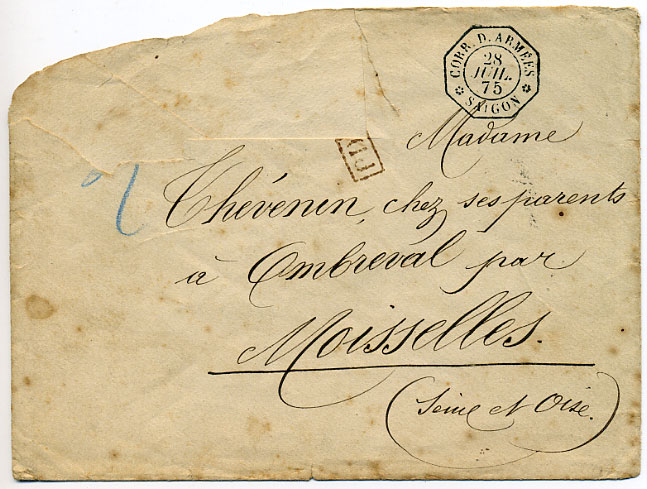 CORR. D. ARMÉES
28
JUIL.
75
SAIGON
Madame
PD
Thévenin, chez ses parents
à Ombreval par
Moisselles.
(Seine et Oise.)